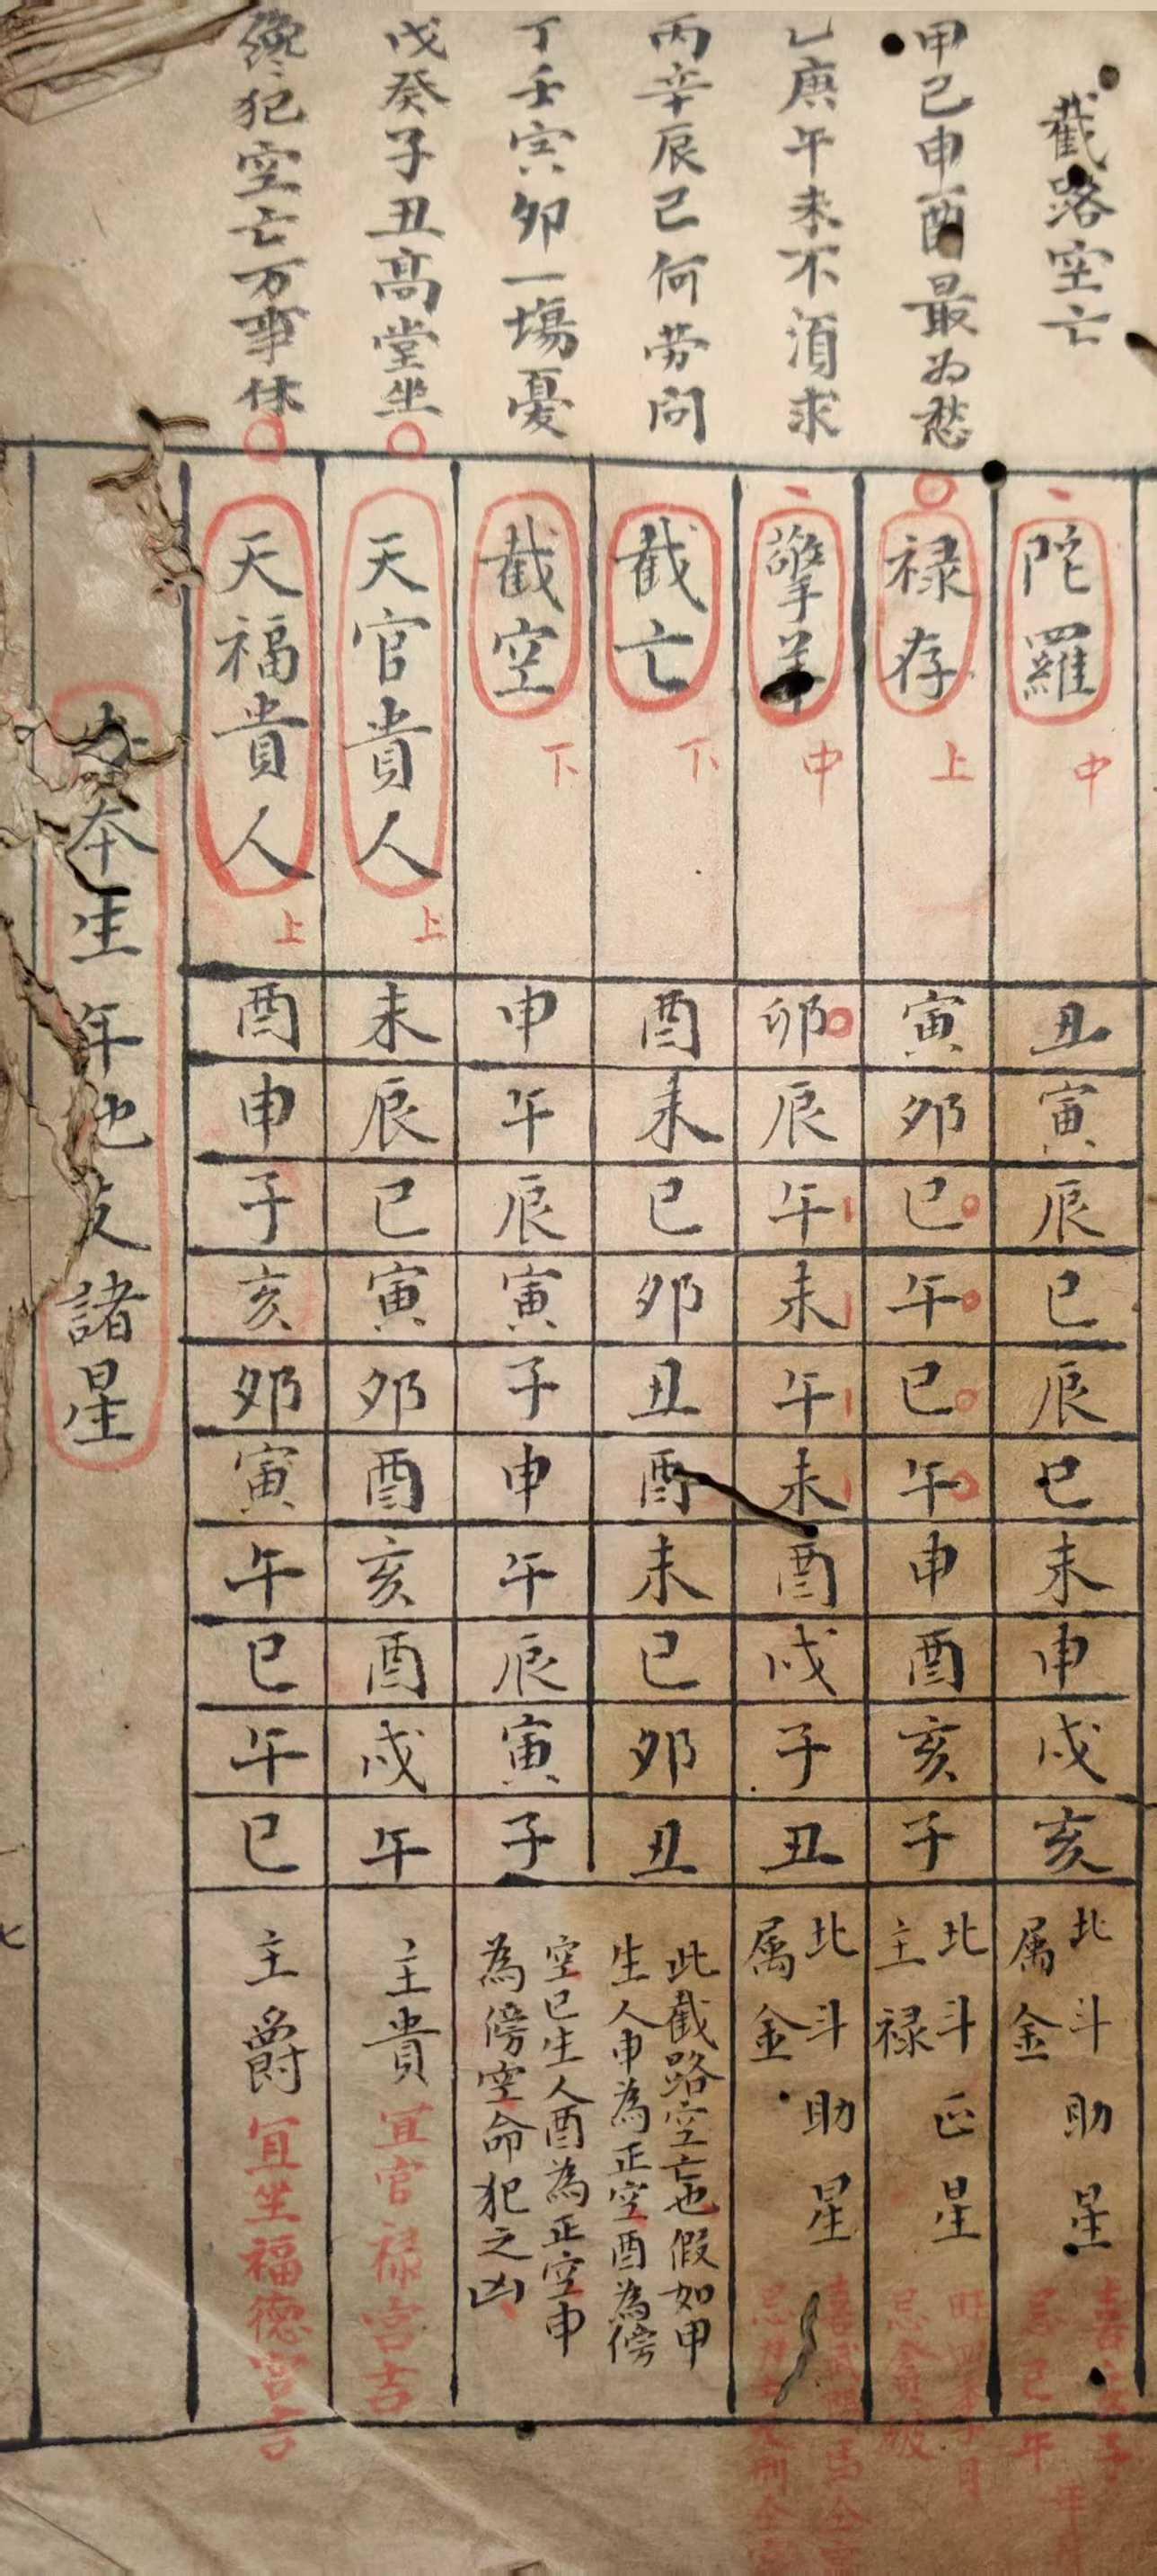 截路空亡
甲己申酉最为愁
乙庚午未不須求
丙辛辰已何劳問
丁壬寅卯一塲憂
戊癸子丑髙堂坐
犯空亡万事休
陀羅 中 丑 寅 辰 巳 辰 巳 未 申 戌 亥 北斗助星 属金
禄存 上 寅 卯 巳 午 巳 午 申 酉 亥 子 北斗正星 主禄
擎羊 中 卯 辰 午 未 午 未 酉 戌 子 丑 北斗助星 属金
截亡 下 酉 未 巳 卯 丑 酉 未 巳 卯 丑
此截路空亡也假如甲
生人申為正空酉為傍
截空 下 申 午 辰 寅 子 申 午 辰 寅 子
空巳生人酉為正空申
為傍空命犯之凶
天官貴人 上 未 辰 巳 寅 卯 酉 亥 酉 戌 午 主貴 宜官禄宫吉
天福貴人 上 酉 申 子 亥 卯 寅 午 巳 午 巳 主爵 宜坐福德宫吉
本生年地支諸星
七